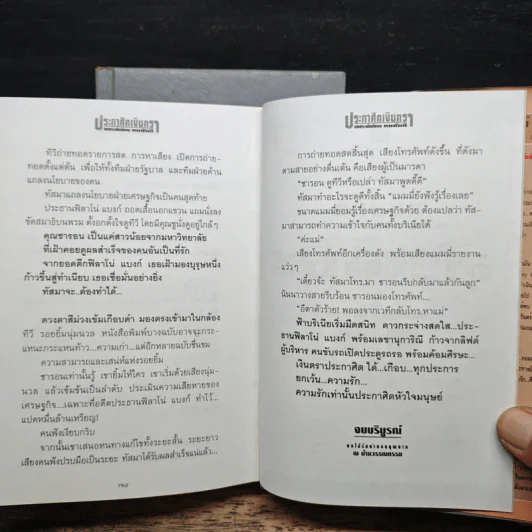 ประกาศิตเงินตรา
ทีวีถ่ายทอดรายการสด ภาวหาเสียง เปิดการถ่าย-
ทอดตั้งแต่ต้น เพื่อให้ทั้งทีมฝ่ายรัฐบาล และทีมฝ่ายค้าน
แถลงนโยบายของตน
ทัสมาแถลงนโยบายฝ่ายเศรษฐกิจเป็นคนสุดท้าย
ประธานฟิลาโน่ แบงก์ ถอดเสื้อนอกแขวน แถมนั่งลง
ขัดสมาธิบนพรม ตั้งอกตั้งใจดูทีวี โดยมีคุณชูนั่งดูอยู่ใกล้ๆ
คุณชารอน เป็นแค่สาวน้อยจากมหาวิทยาลัย
ที่เฝ้าคอยดูผลสำเร็จของคนอันเป็นที่รัก
จากยอดตึกฟิลาโน่ แบงก์ เธอเฝ้ามองบุรุษหนึ่ง
ก้าวขึ้นสู่ทำเนียบ เธอเชื่อมั่นอย่างยิ่ง
ทัสมาจะ..ต้องทำได้...
ดวงตาสีม่วงเข้มเกือบดำ มองตรงเข้ามาในกล้อง
ทีวี รอยยิ้มนุ่มนวล หนังสือพิมพ์บางฉบับอาจจะกระ-
แหนะกระแหนท้าว...ความเก่า...แต่อีกหลายฉบับชื่นชม
ความสามารถและเสน่ห์แห่งรอยยิ้ม
ชารอนเท่านั้นรู้ เขายิ้มให้ใคร เขาเริ่มด้วยเสียงนุ่ม-
นวล แล้วเข้มข้นเป็นลำดับ ประเมินความเสียหายของ
เศรษฐกิจ...เฉพาะที่อดีตประธานฟิลาโน่ แบงก์ ทำไว้...
แปดหมื่นล้านเหรียญ!
คนฟังเงียบกริบ
จากนั้นเขาเสนอหนทางแก้ไขทั้งระยะสั้น ระยะยาว
เสียงคนฟังปรบมือเป็นระยะ ทัสมาได้รับผลสำเร็จแน่แล้ว...
ประกาศิตเงินตรา
การถ่ายทอดสดสิ้นสุด เสียงโทรศัพท์ดังขึ้น ที่ดังมา
ตามสายอย่างตื่นเต้น คือเสียงผู้เป็นมารดา
"ชารอน ดูทีวีหรือเปล่า ทัสมาพูดดี๊ดี"
ทัสมาทำอะไรจะดูดีทั้งสิ้น "แมมมี่ยังฟังรู้เรื่องเลย"
ขนาดแมมมี่ยอมรู้เรื่องเศรษฐกิจด้วย ต้องแปลว่า ทัส-
มาสามารถทำความเข้าใจกับคนทั้งบริเนียได้
"ค่ะแม่"
เสียงโทรศัพท์อีกเครื่องดัง พร้อมเสียงแมมมี่รายงาน
แว่วๆ
"เดี๋ยวจ้ะ ทัสมาโทร.มา ชารอนรีบกลับมาแล้วกันลูก"
นันนาวางสายรีบร้อน ชารอนมองโทรศัพท์...
"อีตาตัวร้าย! พอลงจากเวทีกลับโทร.หาแม่"
ฟ้าบริเนียเริ่มมืดสนิท ดาวกระจ่างสดใส...ประ-
ธานฟิลาโน่ แบงก์ พร้อมเลขานุการิณี ก้าวจากลิฟต์
ผู้บริหาร คนขับรถเปิดประตูรถรอ พร้อมค้อมศีรษะ...
เงินตราประกาศิต ได้...เกือบ...ทุกประการ
ยกเว้น...ความรัก...
ความรักเท่านั้นประกาศิตหัวใจมนุษย์
จบบริบูรณ์
ณ บ้านวรรณกรรม